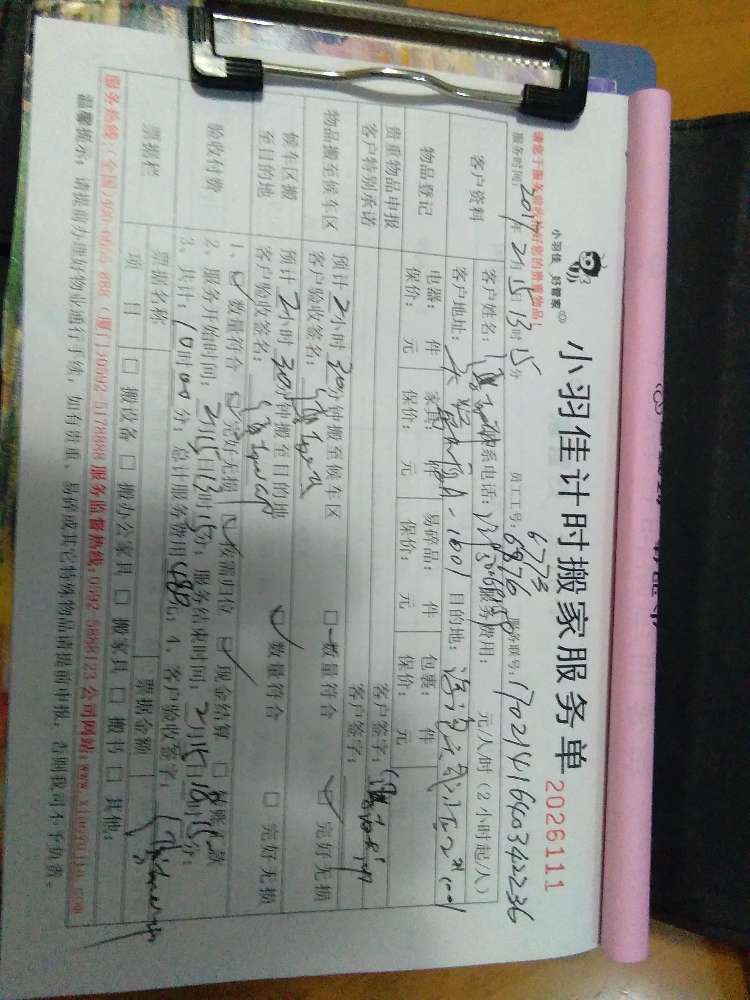 小羽佳 好管家
小羽佳计时搬家服务单
2026111
请您于服务前收拾好您的贵重物品!
服务时间: 2017年2月15日13时15分 员工工号: 6773 6876 服务联号: 17021416400342236
客户资料
客户姓名: 联系电话: 服务费用: 元/人/时(2小时起/人)
客户地址: -1001 目的地:
物品登记
电器: 件 家具: 件 易碎品: 件 包裹: 件
保价: 元 保价: 元 保价: 元 保价: 元
贵重物品申报 客户签字:
客户特别承诺 客户签字:
物品搬至候车区
预计2小时30分钟搬至候车区 □数量符合 □完好无损
客户验收签名:
候车区搬至目的地
预计2小时30分钟搬至目的地 □数量符合 □完好无损
客户验收签名:
验收付费
1、□数量符合 □完好无损 □按需归位 □现金结算
2、服务开始时间: 2月15日13时15分; 服务结束时间: 2月15日18时15分;
3、共计: 10时00分; 总计服务费用: 480元; 4、客户验收签字:
票据栏
票据名称 票据金额
项 目 □搬设备 □搬办公家具 □搬家具 □搬书 □其他:
服务热线:(全国)400-9666-088 (厦门)0592-5178888 服务监督热线:0592-5888123 公司网站:www.xiaoyujia.com
温馨提示: 请提前办理好物业通行手续, 如有贵重、易碎或其它特殊物品请提前申报, 否则我司不予负责。